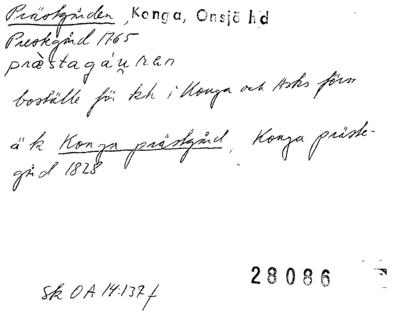 Prästgården, Konga, Onsjö hd
Prestgård 1765
præstagáu̯rən
boställe för kh i Konga och Asks förs
ä k Konga prästgård, Konga präste-
gård 1828
Sk OA 14:137 f
28086